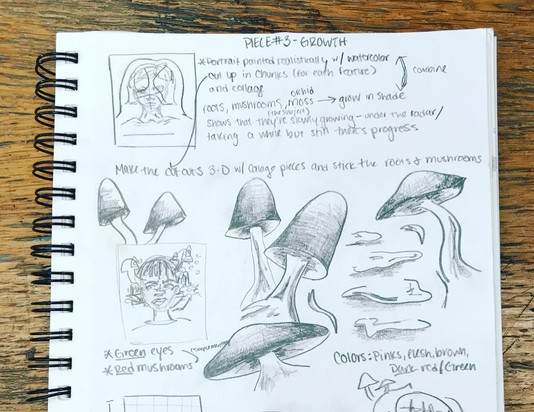 PIECE #3 - GROWTH
*Portrait painted realistically w/ watercolor
cut up in chunks (for each feature)
and collage
combine
orchid
roots, mushrooms, moss → grow in shade
(the subject)
Shows that they're slowly growing - under the radar/
taking a while but still makes progress
Make the cutouts 3-D w/ collage pieces and stick the roots & mushrooms
*Green eyes
*Red mushrooms
Colors: Pinks, flesh, brown,
Dark red/Green